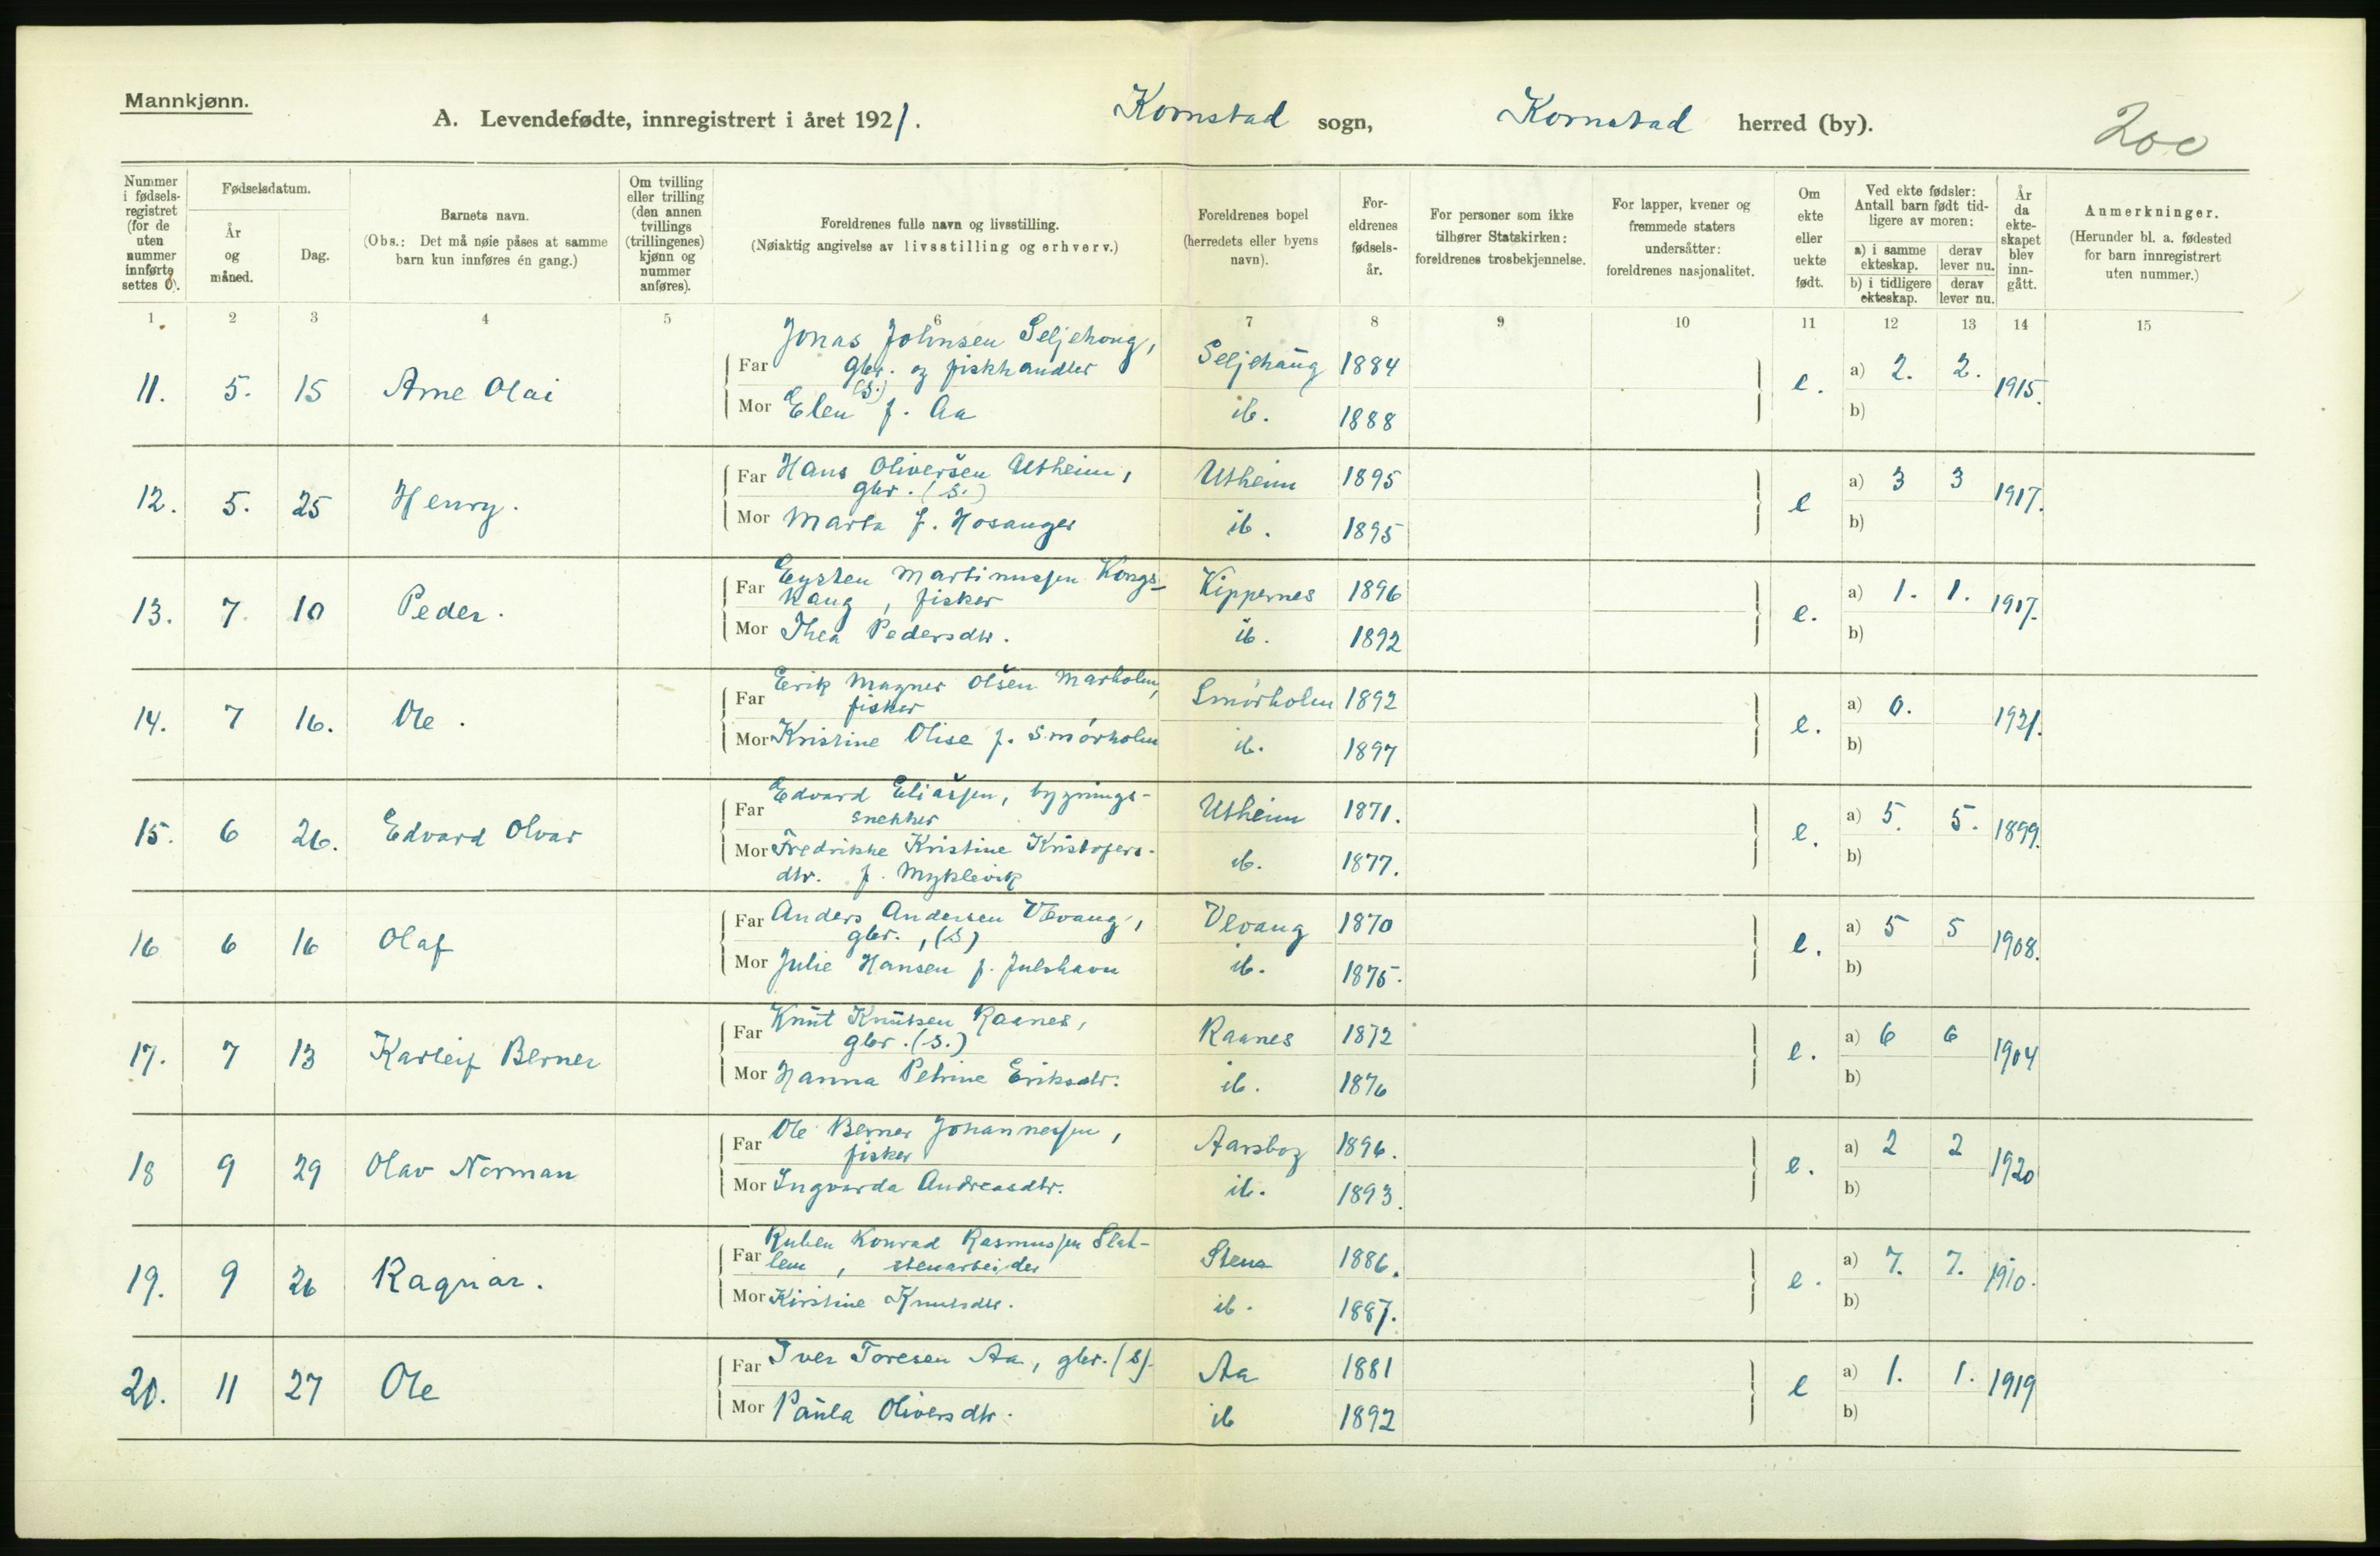 Mannkjønn.
A. Levendefødte, innregistrert i året 1921. Kornstad sogn, Kornstad herred (by). 200
Nummer i fødsels-registret (for de uten nummer innførte settes 0).
Fødselsdatum.
År og måned.
Dag.
Barnets navn.
(Obs.: Det må nøie påses at samme barn kun innføres én gang.)
Om tvilling eller trilling (den annen tvillings (trillingenes) kjønn og nummer anføres).
Foreldrenes fulle navn og livsstilling.
(Nøiaktig angivelse av livsstilling og erhverv.)
Foreldrenes bopel (herredets eller byens navn).
For-eldrenes fødsels-år.
For personer som ikke tilhører Statskirken: foreldrenes trosbekjennelse.
For lapper, kvener og fremmede staters undersåtter: foreldrenes nasjonalitet.
Om ekte eller uekte født.
Ved ekte fødsler: Antall barn født tid-ligere av moren:
a) i samme ekteskap. derav lever nu.
b) i tidligere ekteskap. derav lever nu.
År da ekte-skapet blev inn-gått.
Anmerkninger.
(Herunder bl. a. fødested for barn innregistrert uten nummer.)
1 2 3 4 5 6 7 8 9 10 11 12 13 14 15
Jonas Johnsen Seljehoug,
11. 5. 15 Arne Olai Far gbr. og fiskhandler Seljehaug 1884 e. a) 2. 2. 1915.
(S.)
Mor Elen f. Aa ib. 1888 b)
Far Hans Oliversen Utheim, Utheim 1895 a) 3 3
12. 5. 25 Henry. gbr. (S.) e 1917.
Mor Marta f. Hosanger ib. 1895 b)
Far Eysten Martinussen Kongs- Kippernes 1896 a) 1. 1.
13. 7. 10 Peder. haug, fisker e. 1917.
Mor Thea Pedersdtr. ib. 1892 b)
Far Erik Magner Olsen Marholm, Smørholm 1892 a) 0.
14. 7 16. Ole. fisker e. 1921.
Mor Kristine Olise f. Smørholm ib. 1897 b)
Far Edvard Eliassen, bygnings- Utheim 1871. a) 5. 5.
15. 6 26. Edvard Olvar snekker e. 1899.
Mor Fredrikke Kristine Kristofers- ib. 1877. b)
dtr. f. Myklevik
Far Anders Andersen Vevang, Vevang 1870 a) 5 5
16 6 16 Olaf gbr., (S) e. 1908.
Mor Julie Hansen f. Julshavn ib. 1875. b)
Far Knut Knutsen Raanes, Raanes 1872 a) 6 6
17. 7 13 Karleif Berner gbr. (S.) e. 1904
Mor Hanna Petrine Eriksdtr. ib. 1876 b)
Far Ole Berner Johannessen, Aarsbog 1896. a) 2 2
18 9 29 Olav Norman fisker e. 1920
Mor Ingvarda Andreasdtr. ib. 1893. b)
Far Ruben Konrad Rasmussen Slat- Stene 1886. a) 7. 7.
19. 9 26 Ragnar. lem, stenarbeider e. 1910.
Mor Kirstine Knutsdtr. ib. 1887. b)
Far Iver Toresen Aa, gbr. (S). Aa 1881 a) 1. 1.
20. 11 27 Ole e 1919
Mor Paula Oliversdtr. ib 1892 b)